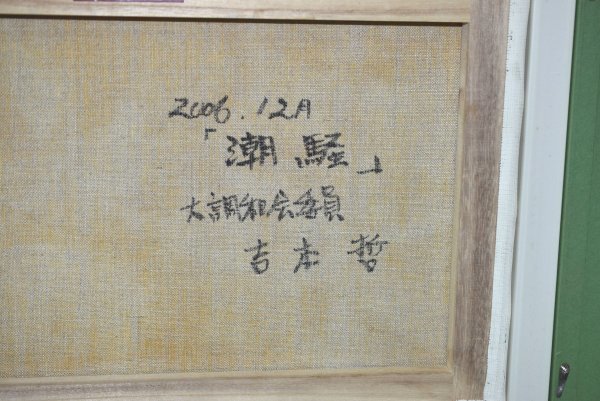 2006.12月
「潮騒」
大調和会委員
吉本哲